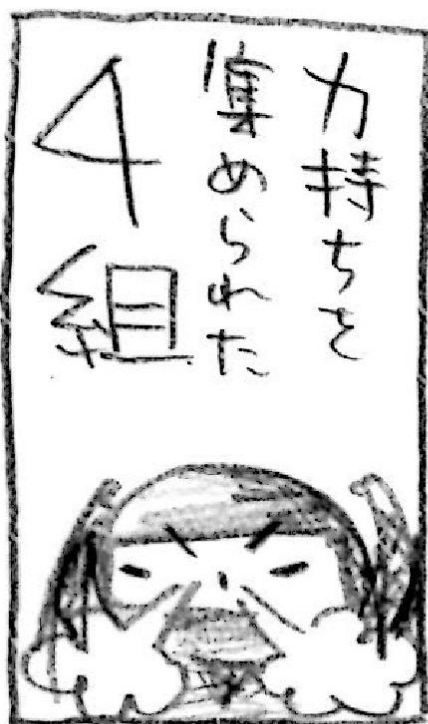 力持ちを
集められた
4組